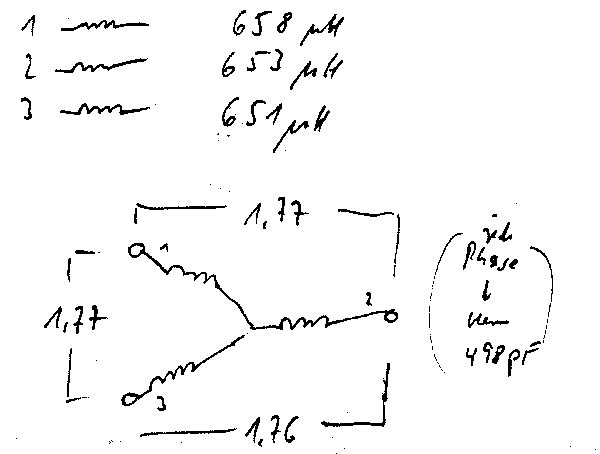 1 658 µH
2 653 µH
3 651 µH
1,77
1
jede
Phase
2
↓
1,77
Kern
498pF
3
1,76